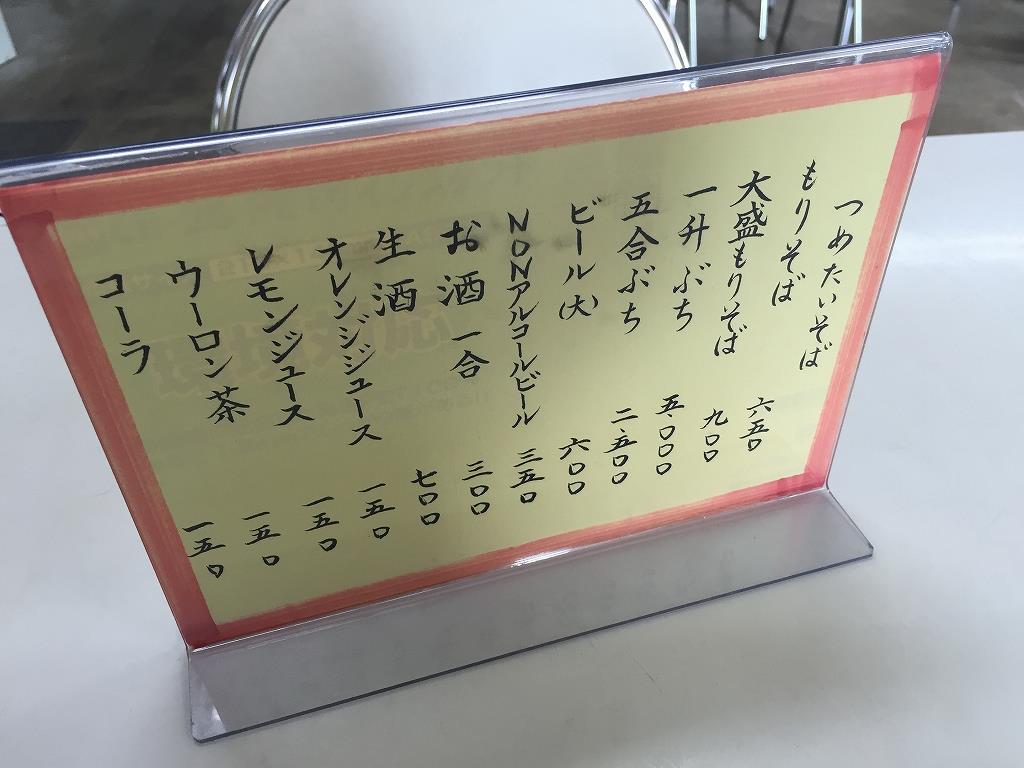 つめたいそば
もりそば 六五〇
大盛もりそば 九〇〇
一升ぶち 五〇〇〇
五合ぶち 二、五〇〇
ビール(大) 六〇〇
NONアルコールビール 三五〇
お酒 一合 三〇〇
生酒 七〇〇
オレンジジュース 一五〇
レモンジュース 一五〇
ウーロン茶 一五〇
コーラ 一五〇